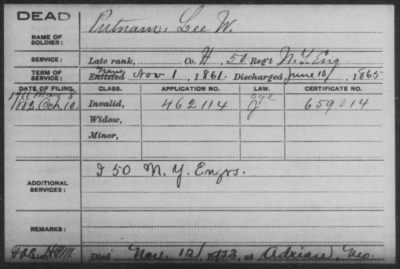 DEAD
NAME OF SOLDIER:
Putnam, Lee W.
SERVICE:
Late rank, Co. H, 50 Reg't N.Y. Eng
TERM OF SERVICE:
Enlisted Nov 1, 1861. Discharged June 13, 1865
DATE OF FILING. CLASS. APPLICATION NO. LAW. CERTIFICATE NO.
1882 Oct. 10. Invalid, 462114 659014
Widow,
Minor,
ADDITIONAL SERVICES:
I 50 N.Y. Engrs.
REMARKS:
Died Nov. 12, at Adrian,